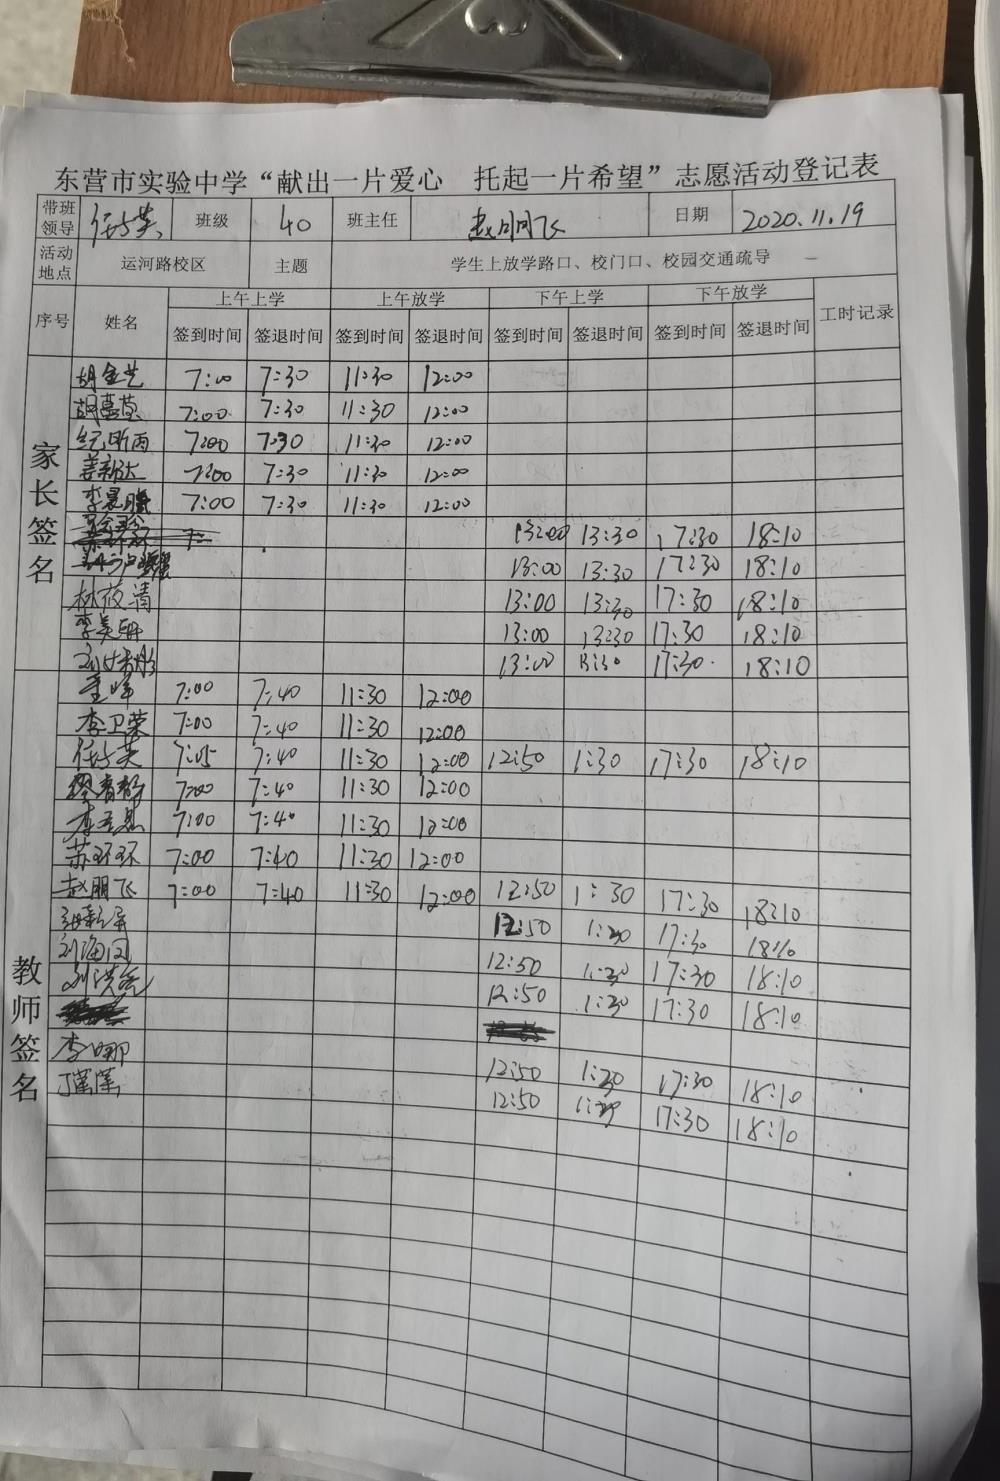 东营市实验中学“献出一片爱心 托起一片希望”志愿活动登记表
带班领导 任子英 班级 40 班主任 赵明飞 日期 2020.11.19
活动地点 运河路校区 主题 学生上放学路口、校门口、校园交通疏导
序号 姓名 上午上学 上午放学 下午上学 下午放学 工时记录
签到时间 签退时间 签到时间 签退时间 签到时间 签退时间 签到时间 签退时间
家长签名
胡金艺 7:00 7:30 11:30 12:00
胡嘉茵 7:00 7:30 11:30 12:00
纪昕雨 7:00 7:30 11:30 12:00
姜新达 7:00 7:30 11:30 12:00
李晨曦 7:00 7:30 11:30 12:00
13:00 13:30 17:30 18:10
13:00 13:30 17:30 18:10
林筱清 13:00 13:30 17:30 18:10
李美研 13:00 13:30 17:30 18:10
13:00 13:30 17:30 18:10
教师签名
7:00 7:40 11:30 12:00
李卫荣 7:00 7:40 11:30 12:00
任子英 7:05 7:40 11:30 12:00 12:50 1:30 17:30 18:10
7:00 7:40 11:30 12:00
7:00 7:40 11:30 12:00
苏环环 7:00 7:40 11:30 12:00
赵明飞 7:00 7:40 11:30 12:00 12:50 1:30 17:30 18:10
12:50 1:30 17:30 18:10
刘海 12:50 1:30 17:30 18:10
刘洪 12:50 1:30 17:30 18:10
李娜 12:50 1:30 17:30 18:10
丁潇潇 12:50 1:30 17:30 18:10